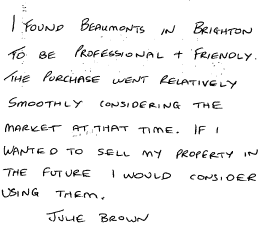 I FOUND BEAUMONTS IN BRIGHTON
TO BE PROFESSIONAL + FRIENDLY.
THE PURCHASE WENT RELATIVELY
SMOOTHLY CONSIDERING THE
MARKET AT THAT TIME. IF I
WANTED TO SELL MY PROPERTY IN
THE FUTURE I WOULD CONSIDER
USING THEM.
JULIE BROWN